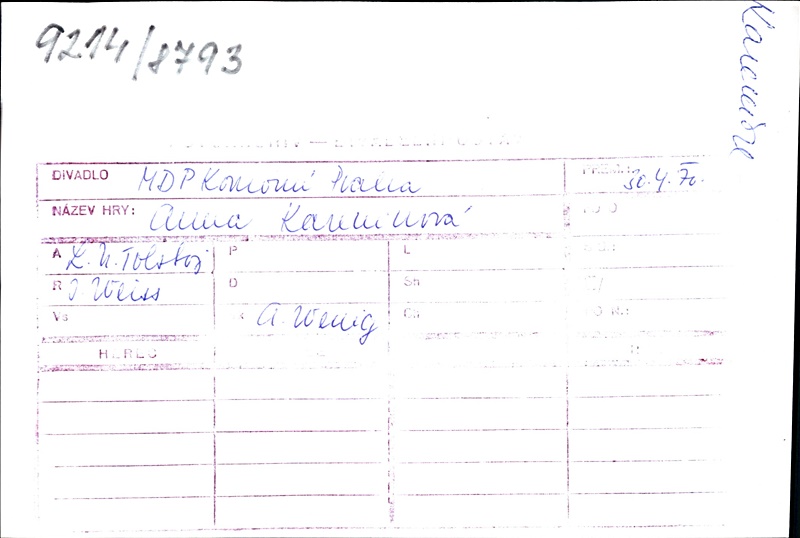 9214/8793
DIVADLO MDP Komorní Praha 30.4.70.
NÁZEV HRY: Anna Kareninová
A L. N. Tolstoj P L
R J Weiss D Sh
Vs K A. Wenig Ch
HEREC